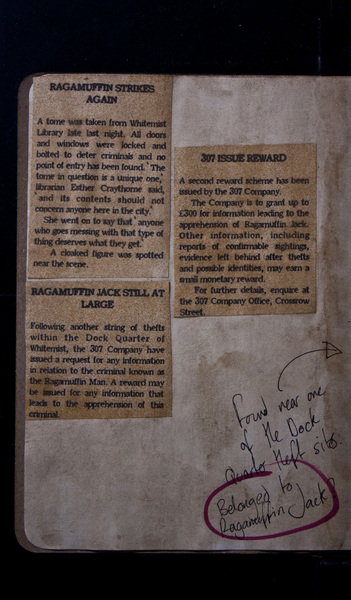 RAGAMUFFIN STRIKES
AGAIN
A tome was taken from Whitemist
Library late last night. All doors
and windows were locked and
bolted to deter criminals and no
point of entry has been found. 'The
tome in question is a unique one,'
librarian Esther Craythorne said,
'and its contents should not
concern anyone here in the city.'
She went on to say that 'anyone
who goes messing with that type of
thing deserves what they get.'
A cloaked figure was spotted
near the scene.
RAGAMUFFIN JACK STILL AT
LARGE
Following another string of thefts
within the Dock Quarter of
Whitemist, the 307 Company have
issued a request for any information
in relation to the criminal known as
the Ragamuffin Man. A reward may
be issued for any information that
leads to the apprehension of this
criminal.
307 ISSUE REWARD
A second reward scheme has been
issued by the 307 Company.
The Company is to grant up to
£300 for information leading to the
apprehension of Ragamuffin Jack.
Other information, including
reports of confirmable sightings,
evidence left behind after thefts
and possible identities, may earn a
small monetary reward.
For further details, enquire at
the 307 Company Office, Crossrow
Street.
Found near one
of the Dock
Quarter theft sites.
Belonged to
Ragamuffin Jack?